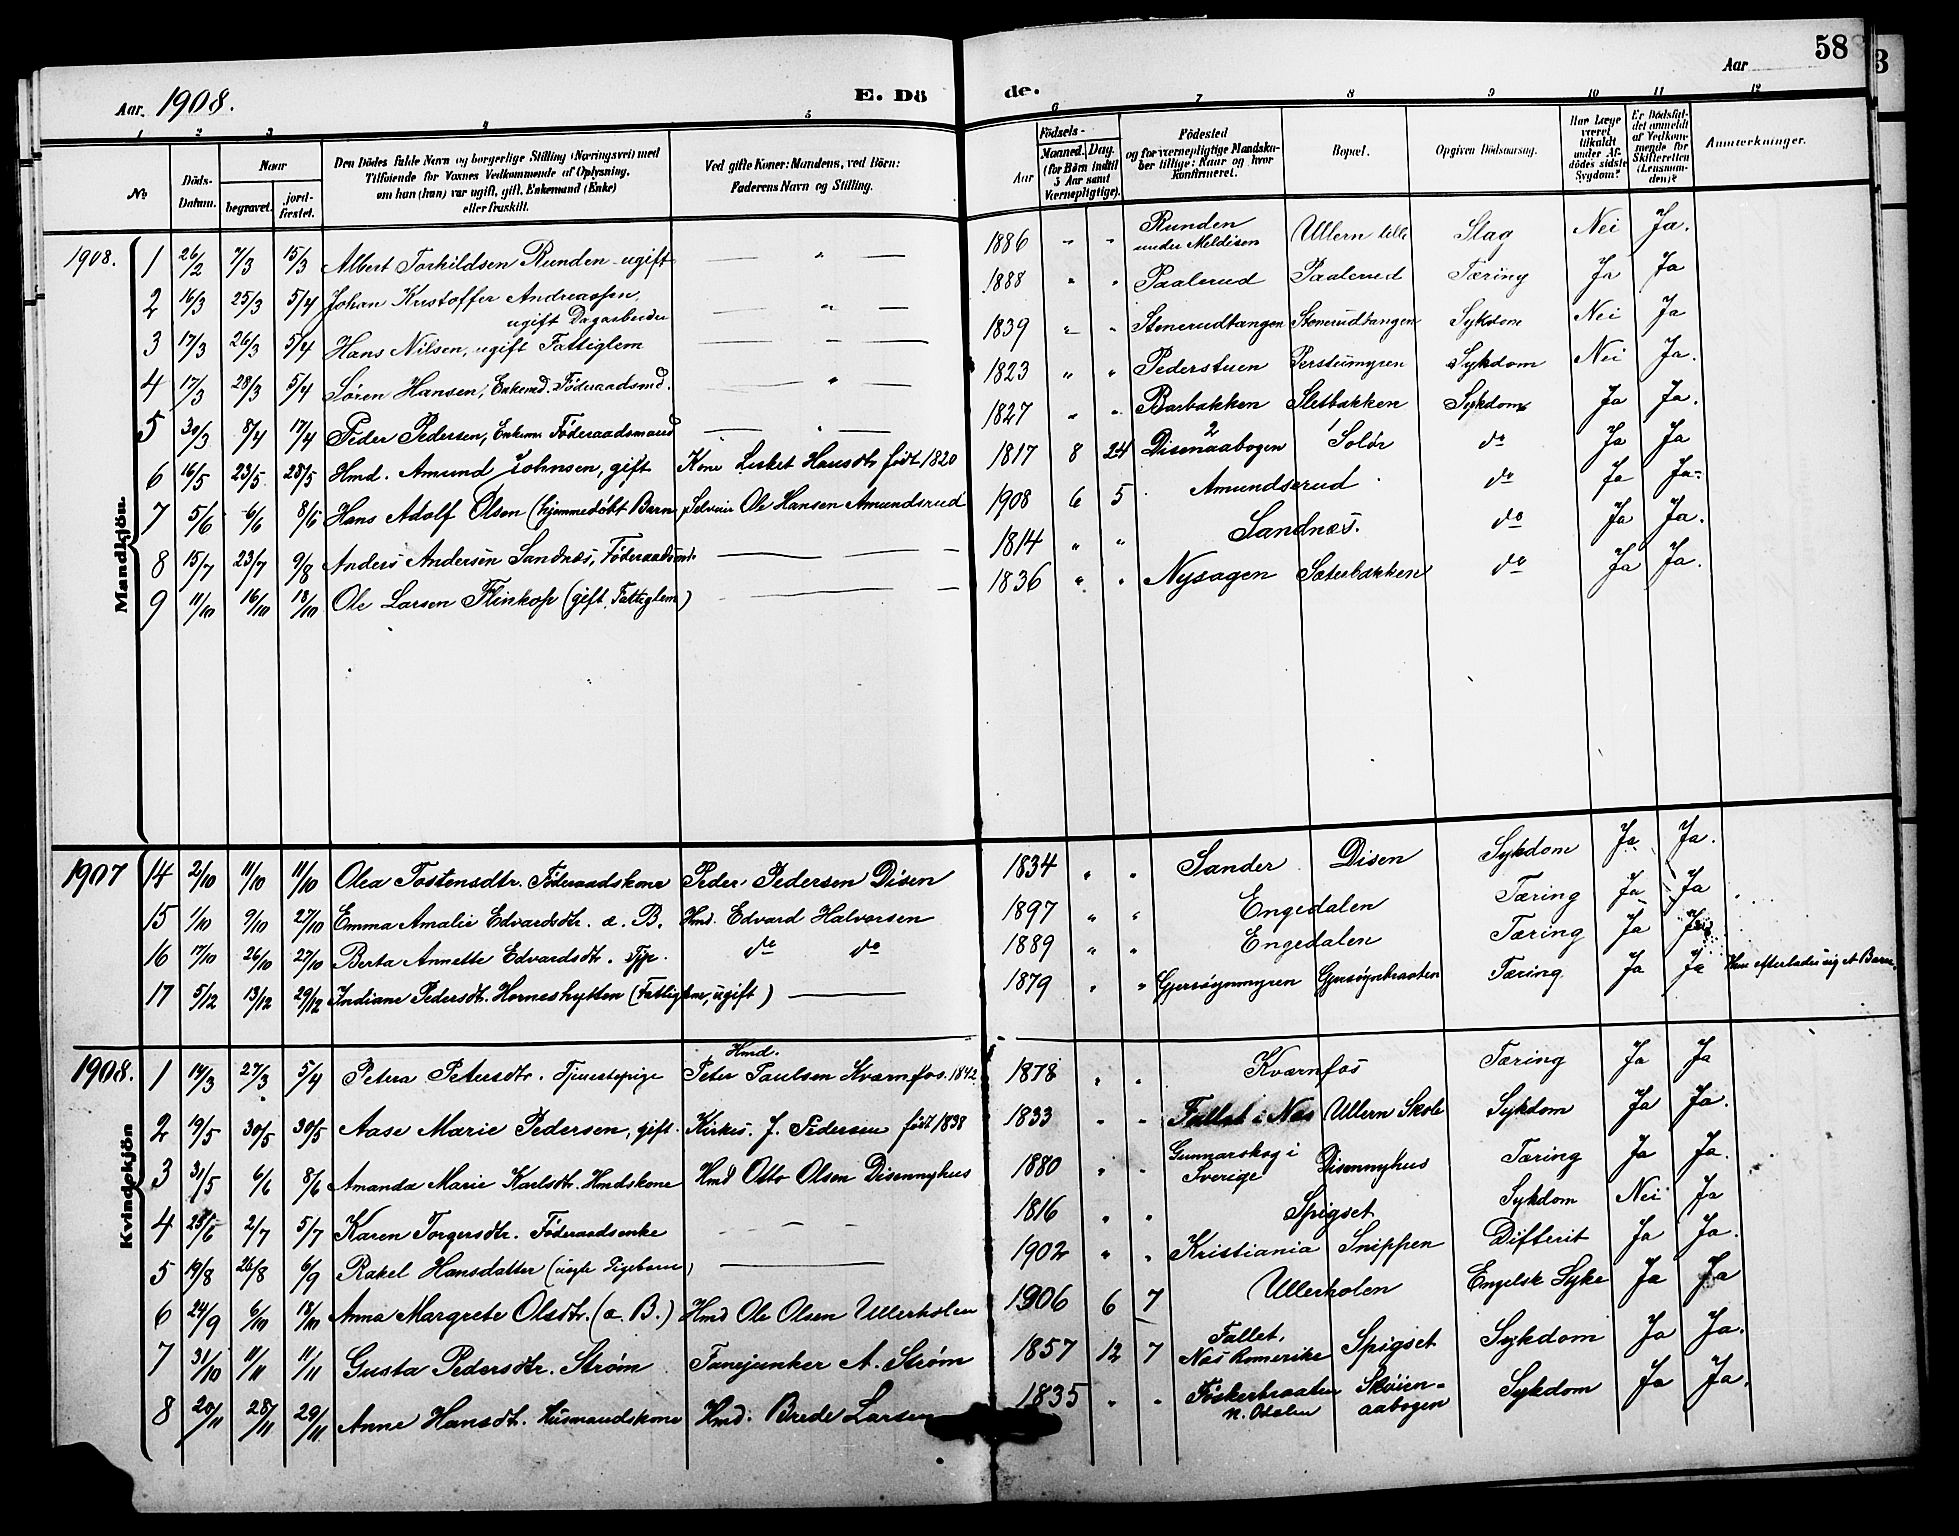 58
Aar. 1908.
E. Dö de.
Aar
1 2 3 4 5 6 7 8 9 10 11 12
No
Döds-Datum.
Naar
begravet.
jord-fæstet.
Den Dödes fulde Navn og borgerlige Stilling (Næringsvei) med
Tilföiende for Voxnes Vedkommende af Oplysning,
om han (hun) var ugift, gift, Enkemand (Enke)
eller fraskilt.
Ved gifte Koner: Mandens, ved Börn:
Faderens Navn og Stilling.
Födsels-
Aar
Maaned. Dag.
(for Börn indtil
5 Aar samt
Værnepligtige).
Födested
og for værnepligtige Mandskaber tillige: Naar og hvor
konfirmeret.
Bopæl.
Opgiven Dödsaarsag.
Har Læge
været
tilkaldt
under Afdödes sidste
Sygdom?
Er Dödsfaldet anmeldt
af Vedkommende for
Skifteretten
(Lensmanden)?
Anmærkninger.
Mandkjön.
1908. 1 26/2 7/3 15/3 Albert Torkildsen Runden ugift — " — 1886 " " Runden under Meldisen Ullern lille Slag Nei Ja.
2 16/3 25/3 5/4 Johan Kristoffer Andreassen, ugift Dagarbeider — " — 1888 " " Paalerud Paalerud Tæring Ja Ja
3 17/3 26/3 5/4 Hans Nilsen, ugift Fattiglem — " — 1839 " " Stenerudtangen Stenerudtangen Sykdom Nei Ja
4 17/3 28/3 5/4 Søren Hansen, Enkemd. Føderaadsmd. — " — 1823 " " Pederstuen Perstumyren Sykdom Nei Ja.
5 30/3 8/4 17/4 Peder Pedersen, Enkem. Føderaadsmand — " — 1827 " " Barbakken Sletbakken Sykdom Ja Ja.
6 16/5 23/5 28/5 Hmd. Amund Johnsen, gift Kone Lisket Hansdtr født 1820 1817 8 24 Disenaabogen 2 Solør 1 do Ja Ja
7 5/6 6/6 8/6 Hans Adolf Olsen (hjemmedøbt Barn Selveier Ole Hansen Amundsrud 1908 6 5 Amundsrud do Ja Ja
8 15/7 23/7 9/8 Anders Andersen Sandnæs, Føderaadsmd. — — 1814 " " Sandnæs. do Ja Ja.
9 11/10 16/10 18/10 Ole Larsen Flinkop (gift, Fattiglem) — — 1836 " " Nysagen Sæterbakken do Ja Ja.
Kvindekjön
1907 14 2/10 11/10 11/10 Olea Tostensdtr. Føderaadskone Peder Pedersen Disen 1834 " " Sander Disen Sykdom Ja Ja.
15 1/10 9/10 27/10 Emma Amalie Edvardsdtr. æ. B. Hmd. Edvard Halvorsen 1897 " " Engedalen Tæring Ja Ja
16 17/10 26/10 27/10 Berta Annette Edvardsdtr. Tjp. do do 1889 " " Engedalen Tæring Ja Ja
17 5/12 13/12 29/12 Indiane Pedersdtr. Horneshytten (Fattiglem, ugift) — 1879 " " Gjersøyenmyren Gjersøynbraaten Tæring Ja Ja Hun efterlader sig et Barn.
1908. 1 19/3 27/3 5/4 Petera Petersdtr. Tjenestepige Hmd. Peter Paulsen Kværnfos. 1842 1878 " " Kværnfos Tæring Ja Ja
2 19/5 30/5 30/5 Aase Marie Pedersen, gift. Kirkes. J. Pedersen født 1838 1833 " " Fallet i Nes Ullern Skole Sykdom Ja Ja.
3 31/5 6/6 8/6 Amanda Marie Karlsdtr. Hmdskone Hmd Otto Olsen Disennyhus 1880 " " Gunnarskog i Sverige Disennyhus Tæring Ja Ja.
4 25/6 2/7 5/7 Karen Torgersdtr. Føderaadsenke — 1816 " " Spigset Sykdom Nei Ja
5 19/8 26/8 6/9 Rakel Hansdatter (uegte Pigebarn) — 1902 " " Kristiania Snippen Difterit Ja Ja.
6 24/9 6/10 18/10 Anna Margrete Olsdtr. (æ. B.) Hmd Ole Olsen Ullerholen 1906 6 7 Ullerholen Engelsk Syke Ja Ja
7 31/10 11/11 11/11 Gusta Pedersdtr. Strøm Fanejunker A. Strøm 1857 12 7 Fallet, Nes Romerike Spigset Sykdom Ja Ja.
8 20/11 28/11 29/11 Anne Hansdtr. Husmandskone Hmd: Brede Larsen 1835 " " Føskerbraaten N. Odalen Skøien-aabogen Sykdom Ja Ja.